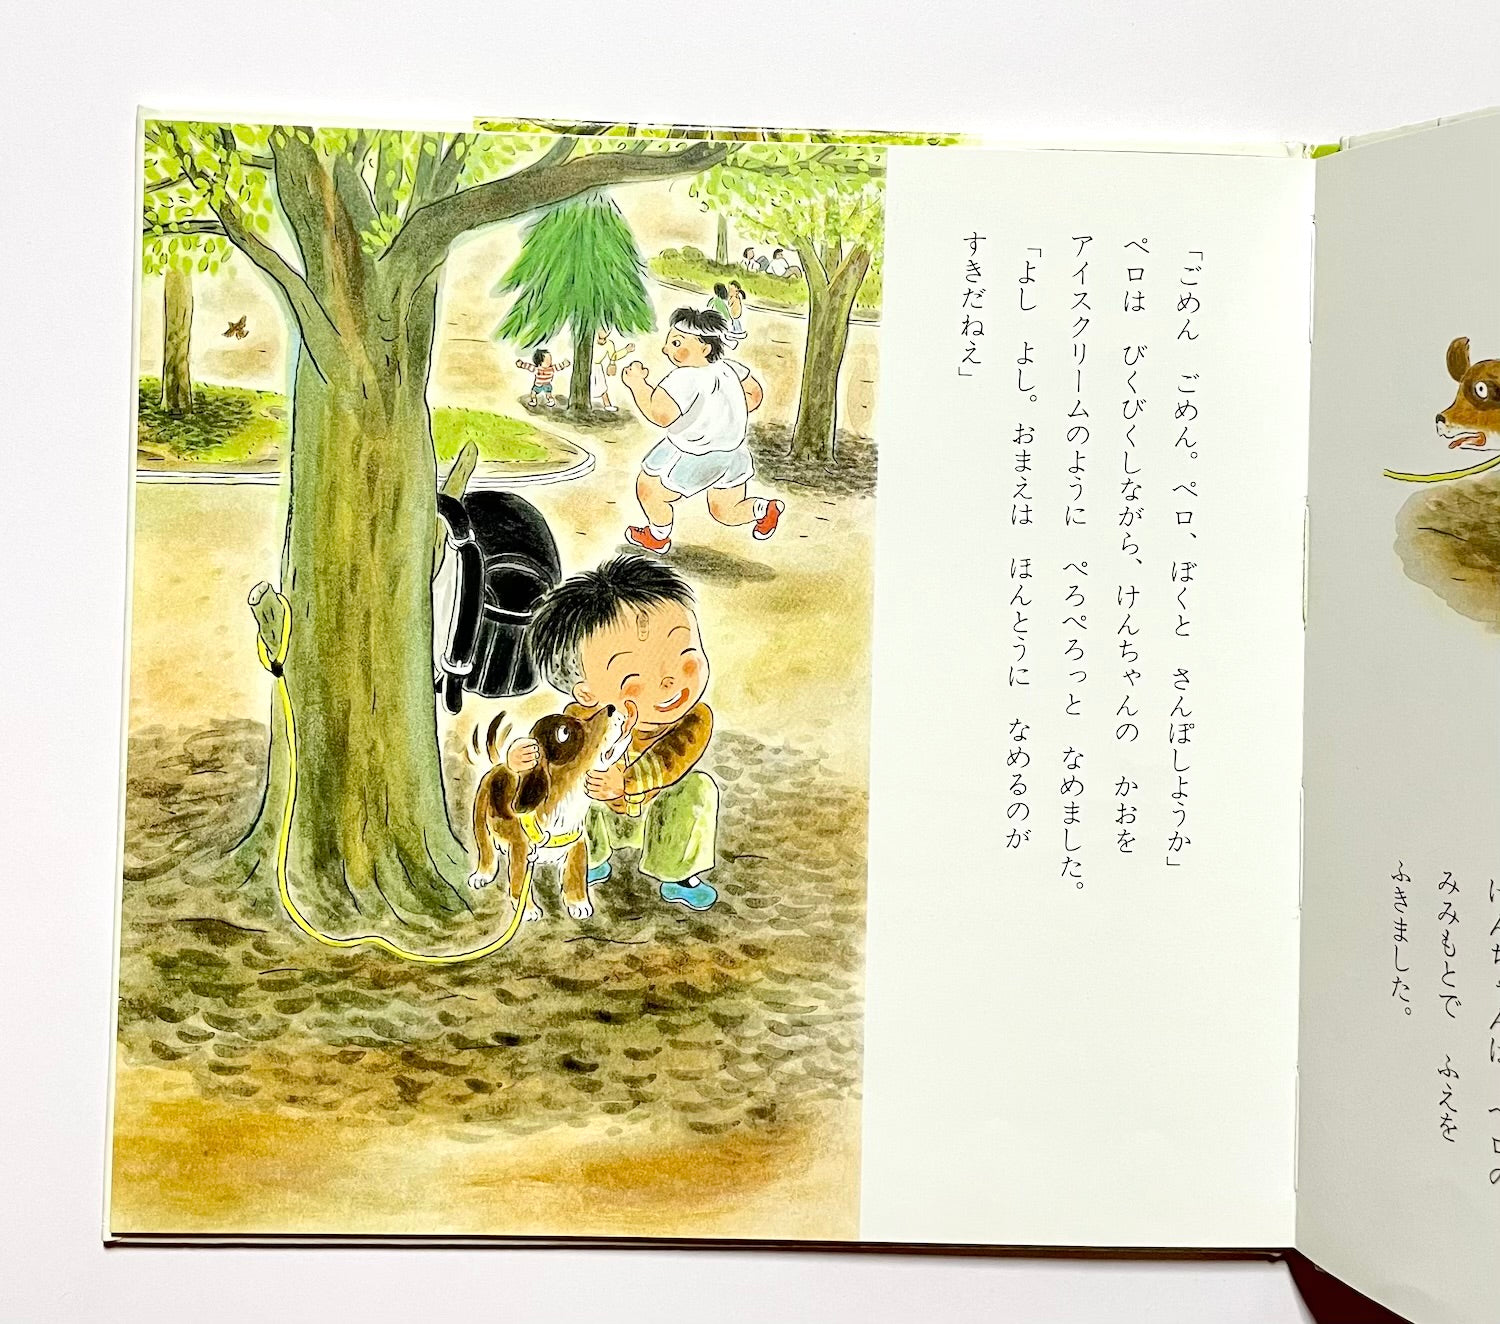 「ごめん　ごめん。ペロ、ぼくと　さんぽしようか」
ペロは　びくびくしながら、けんちゃんの　かおを
アイスクリームのように　ぺろぺろっと　なめました。
「よし　よし。おまえは　ほんとうに　なめるのが
すきだねえ」
けんちゃんは　ペロの
みみもとで　ふえを
ふきました。